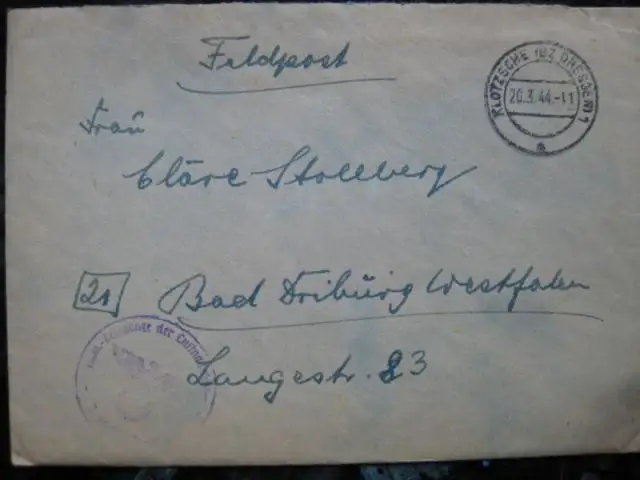 Feldpost
KLOTZSCHE (BZ DRESDEN) 1
20.3.44.-11
a
Frau
Cläre Stollberg
21 Bad Driburg Westfalen
der Luftw
Langestr. 83